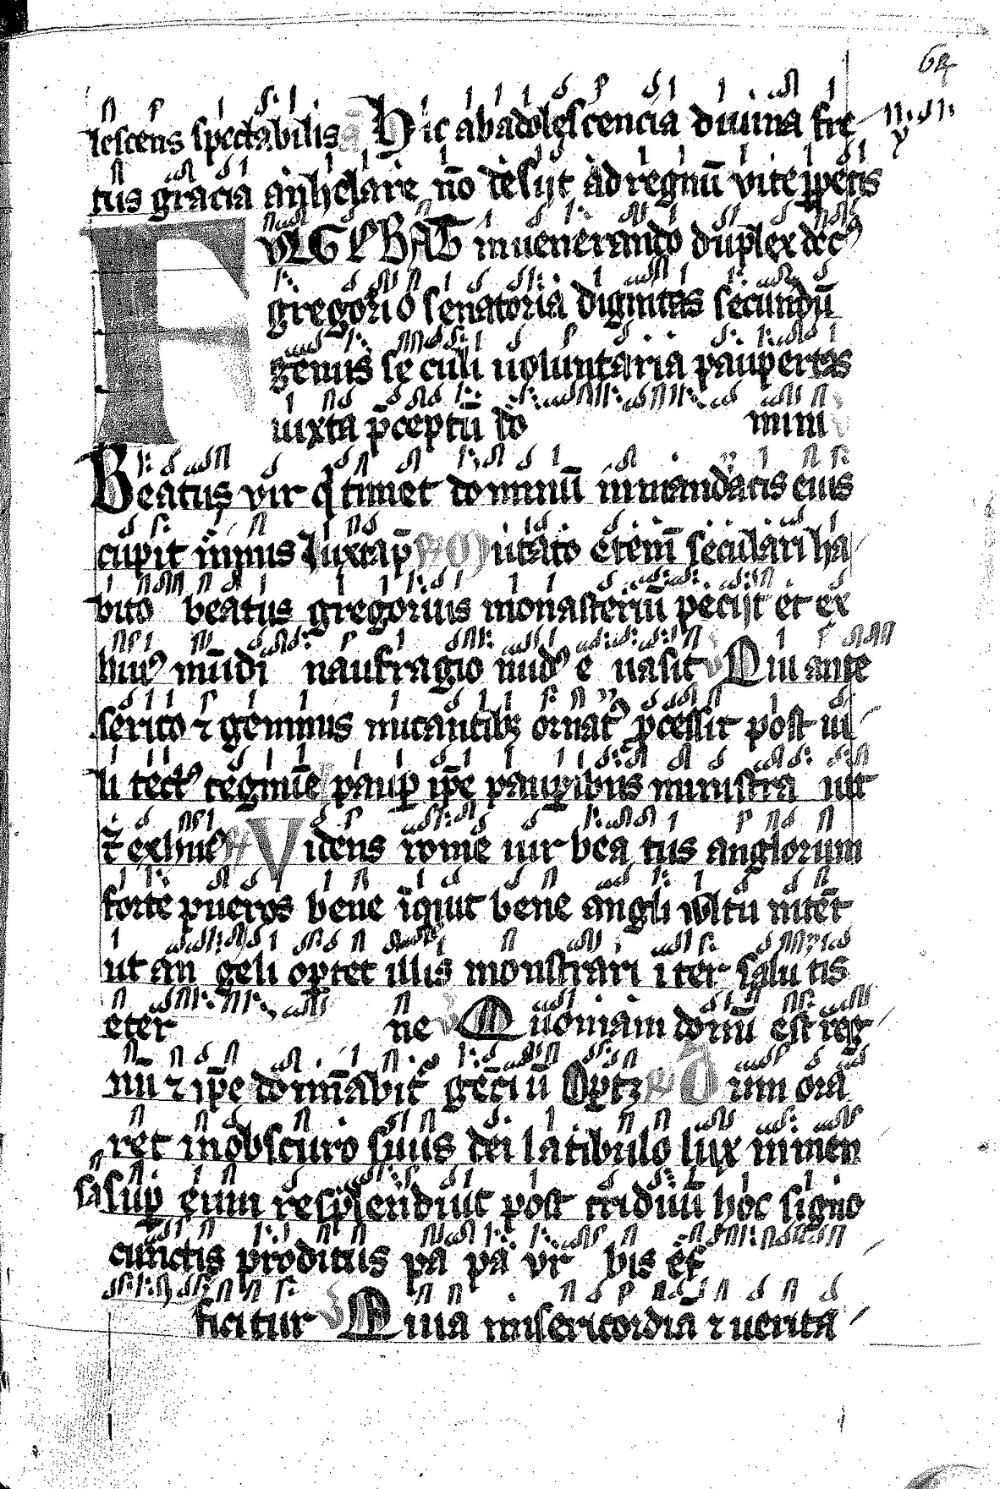 lescens spectabilis Hic ab adolescencia diuina fre
tus gracia anhelare nō desijt ad regnū vite ppetis
FVLGEBAT in uenerando duplex dec⁹
gregorio senatoria dignitas secundū
genus seculi uoluntaria paupertas
iuxta p̄ceptū do mini
Beatus vir q timet dominū in mandatis eius
cupit nimis Iuxta p̄ Mutato etenī seculari ha
bito beatus gregorius monasteriū pecijt et ex
hui⁹ mūdi naufragio nud⁹ e uasit Qui ante
serico ⁊ gemmis micantibꝫ ornat⁹ pcessit post ui
li tect⁹ tegmīe paup ip̄e paupibus ministra uit
⁊ ex hui⁹ Videns rome uir bea tus anglorum
forte pueros bene īquit bene angli wltū nitēt
ut an geli optet illis monstrari iter salu tis
eter ne Quoniam domī est reg
nū ⁊ ip̄e dominabit gēciū Optꝫ Dum ora
ret in obscuro situs dei latibulo lux inmen
sa sup eum resplenduit post triduū hoc signo
cunctis proditus pa pa vr bis ef
ficitur Quia misericordia ⁊ uerita